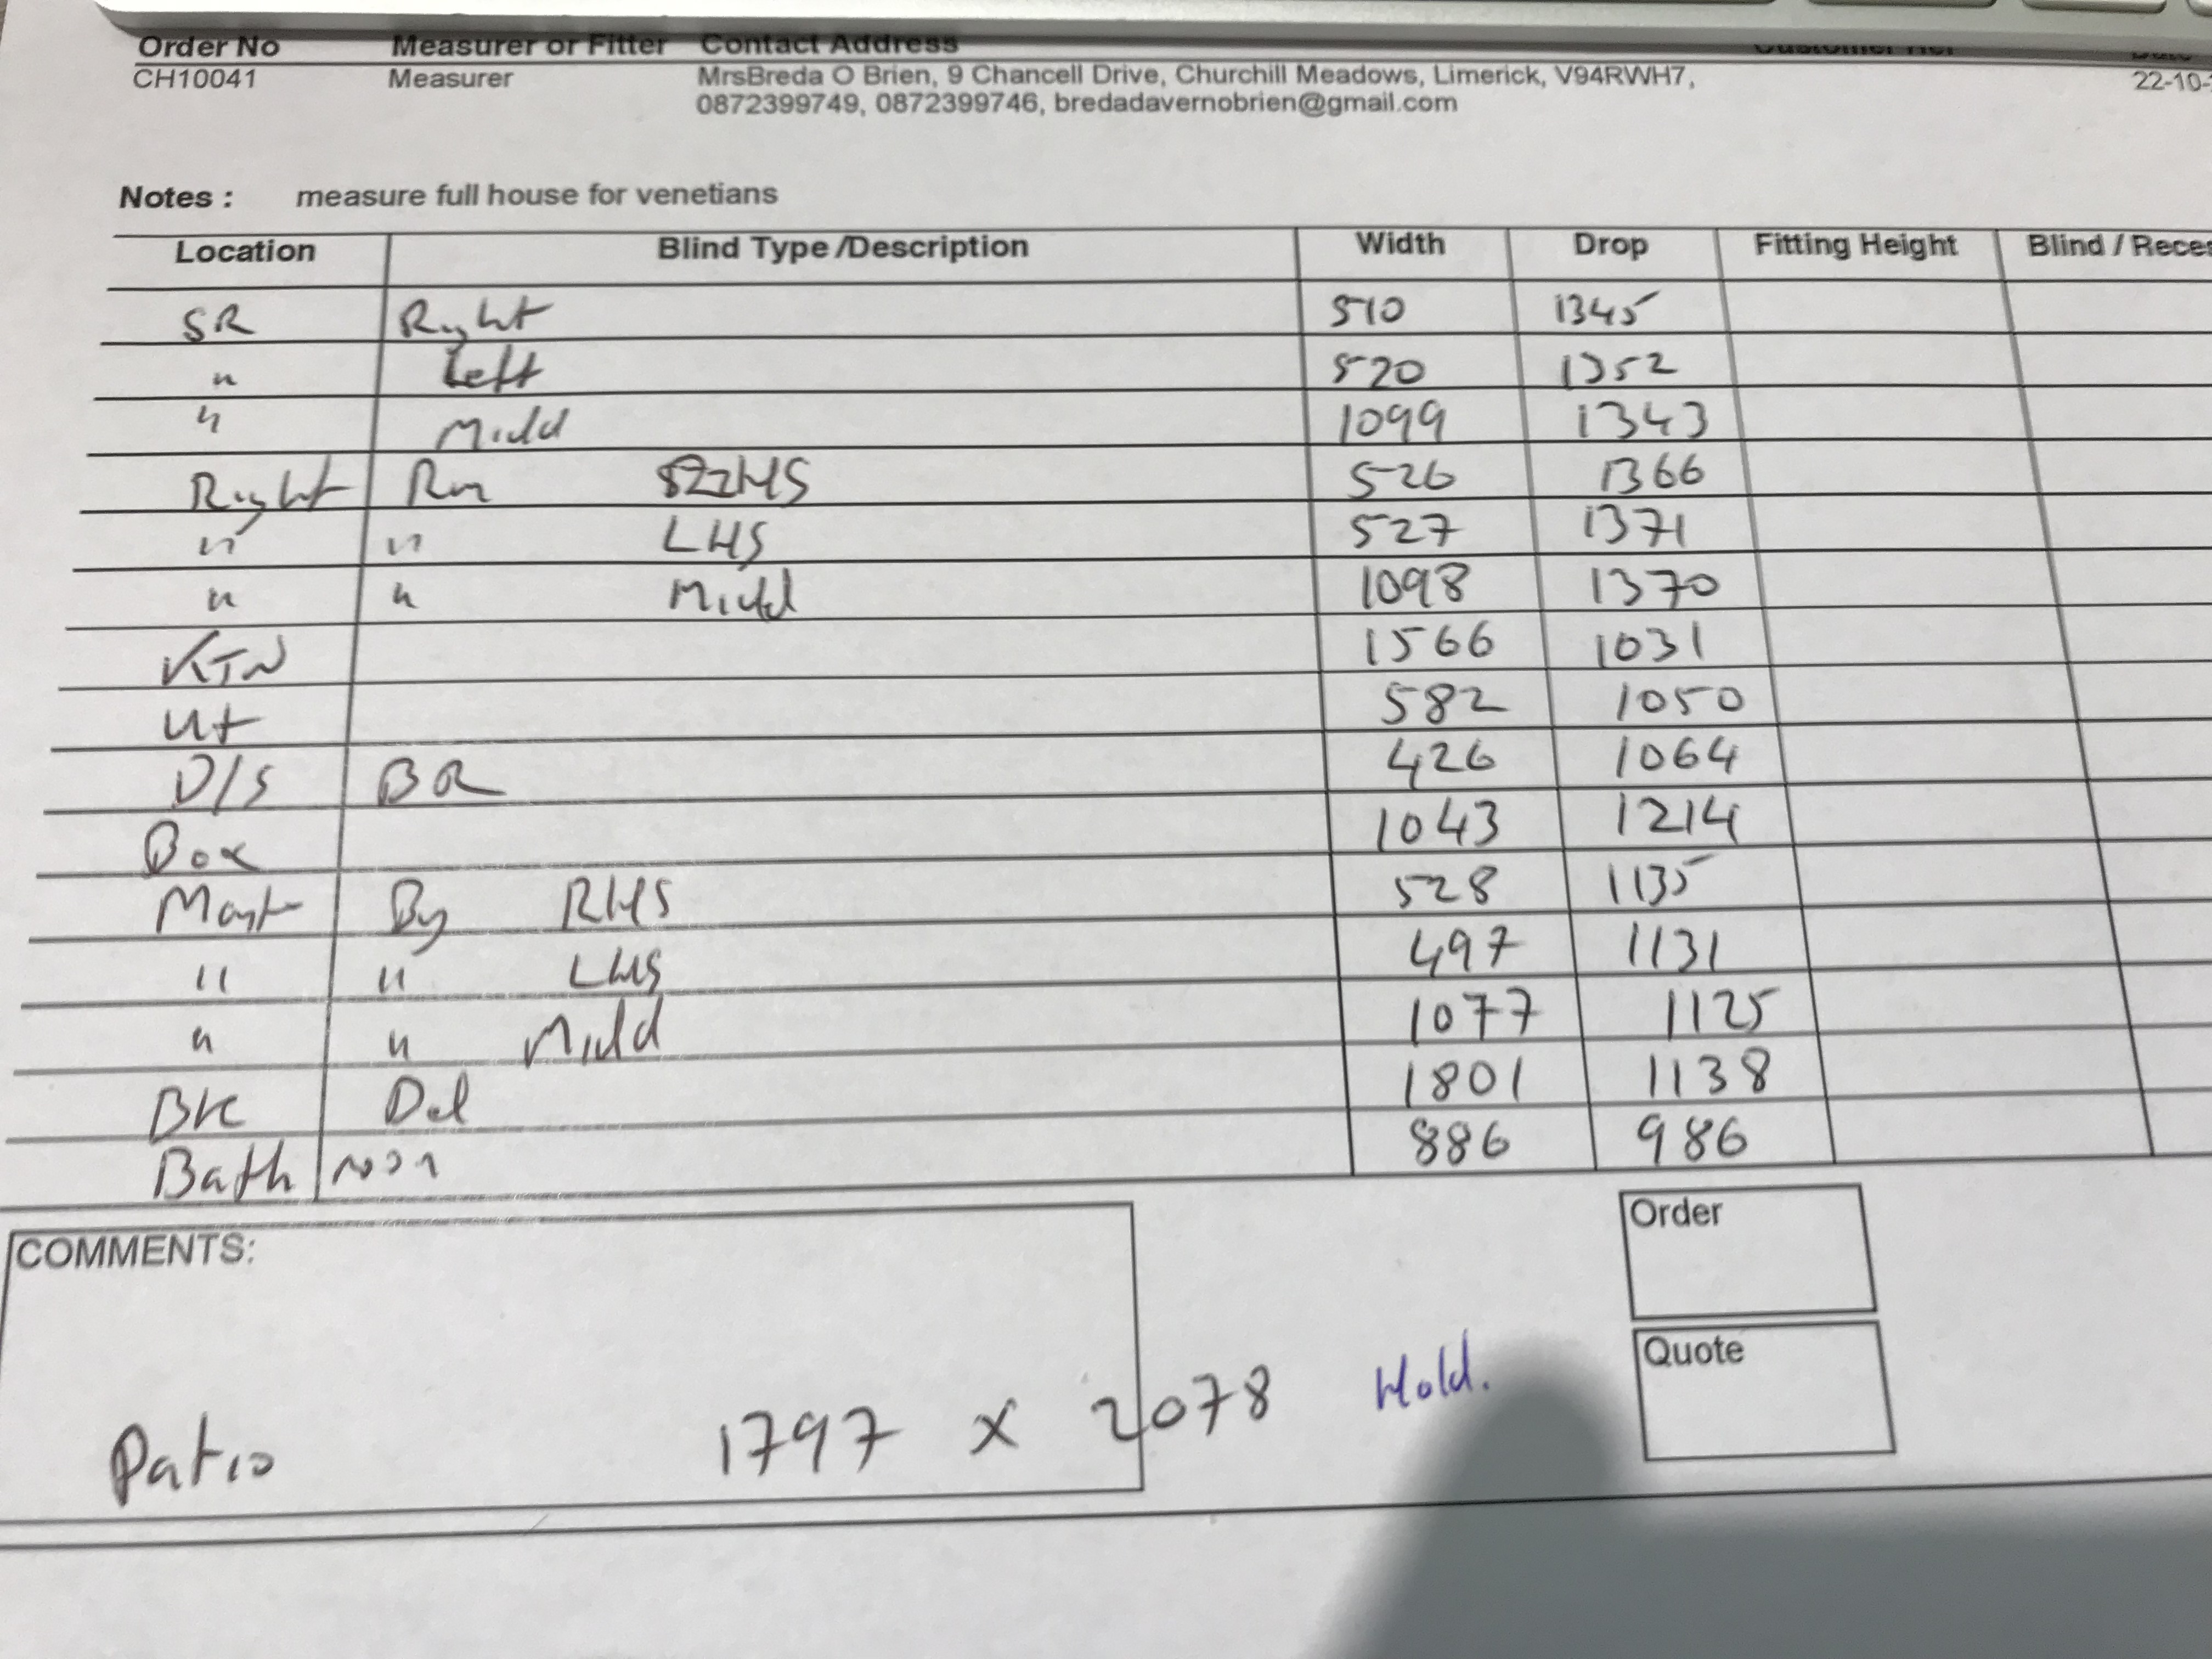 Order No Measurer or Fitter Contact Address Customer Ref Date
CH10041 Measurer MrsBreda O Brien, 9 Chancell Drive, Churchill Meadows, Limerick, V94RWH7, 22-10-
0872399749, 0872399746, bredadavernobrien@gmail.com
Notes : measure full house for venetians
Location Blind Type /Description Width Drop Fitting Height Blind / Reces
SR Right 510 1345
" Left 520 1352
" Midd 1099 1343
Right Rm RHS 526 1366
" " LHS 527 1371
" " Midd 1098 1370
KTN 1566 1031
Ut 582 1050
D/S BR 426 1064
Box 1043 1214
Mast RHS 528 1135
" " LHS 497 1131
" " Midd 1077 1125
BK 1801 1138
Bath room 886 986
COMMENTS:
Order
Quote
Patio 1797 x 2078 Hold.